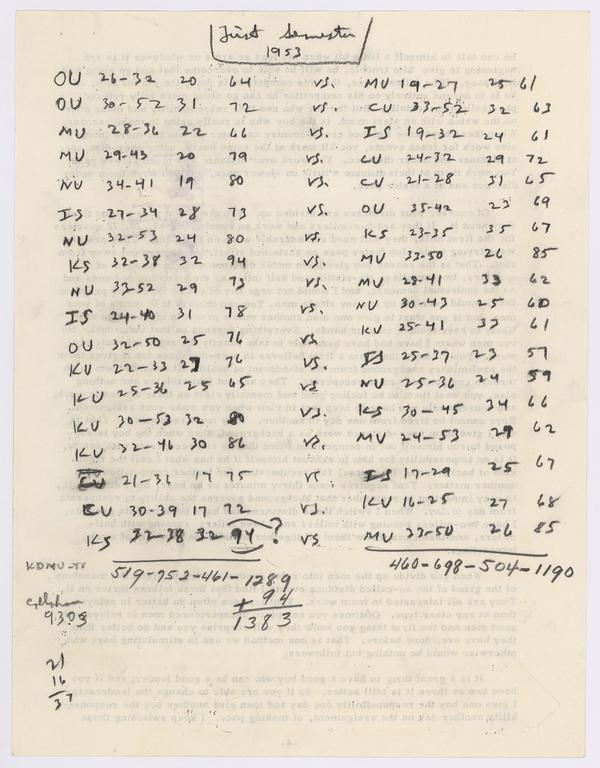 First Semester
1953
OU 26-32 20 64 vs. MU 19-27 25 61
OU 30-52 31 72 vs. CU 33-52 32 63
MU 28-36 22 66 vs. IS 19-32 24 61
MU 29-43 20 79 vs. CU 24-32 29 72
NU 34-41 19 80 vs. CU 21-28 31 65
IS 27-34 28 73 vs. OU 35-42 23 69
NU 32-53 24 80 vs. KS 23-35 35 67
KS 32-38 32 94 vs. MU 33-50 26 85
NU 33-52 29 73 vs. MU 28-41 33 62
IS 24-40 31 78 vs. NU 30-43 25 60
OU 32-50 25 76 vs KU 25-41 33 61
KU 22-33 27 76 vs. IS 25-37 23 57
KU 25-36 25 65 vs NU 25-36 24 59
KU 30-53 32 80 vs. KS 30-45 34 66
KU 32-46 30 86 vs. MU 24-53 29 62
21-31 17 75 vs IS 17-29 25 67
CU 30-39 17 72 vs. KU 16-25 27 68
KS 32-38 32 94 ? vs MU 33-50 26 85
KDMU-TV 519-752-461-1289 460-698-504-1190
+ 94
1383
9303
21
16
37